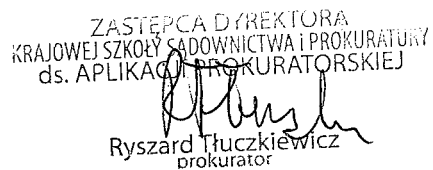 ZASTĘPCA DYREKTORA
KRAJOWEJ SZKOŁY SĄDOWNICTWA i PROKURATURY
ds. APLIKACJI PROKURATORSKIEJ
Ryszard Tłuczkiewicz
prokurator